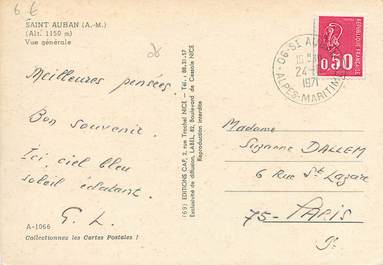 6 €
SAINT AUBAN (A.-M.)
(Alt. 1150 m)
Vue générale
Meilleures pensées.
Bon souvenir.
Ici, ciel bleu
soleil éclatant.
G. L.
A-1066
Collectionnez les Cartes Postales !
(69) EDITIONS CAP, 2, rue Trachel NICE - Tél. : 88.31-57
Exclusivité de diffusion, LABEL, 82, Boulevard de Cessole NICE
Reproduction interdite
06 - ST AU
24
1971
ALPES-MARITIMES
0,50
Madame
Suzanne DALLEM
6 Rue St Lazare
75 - PARIS